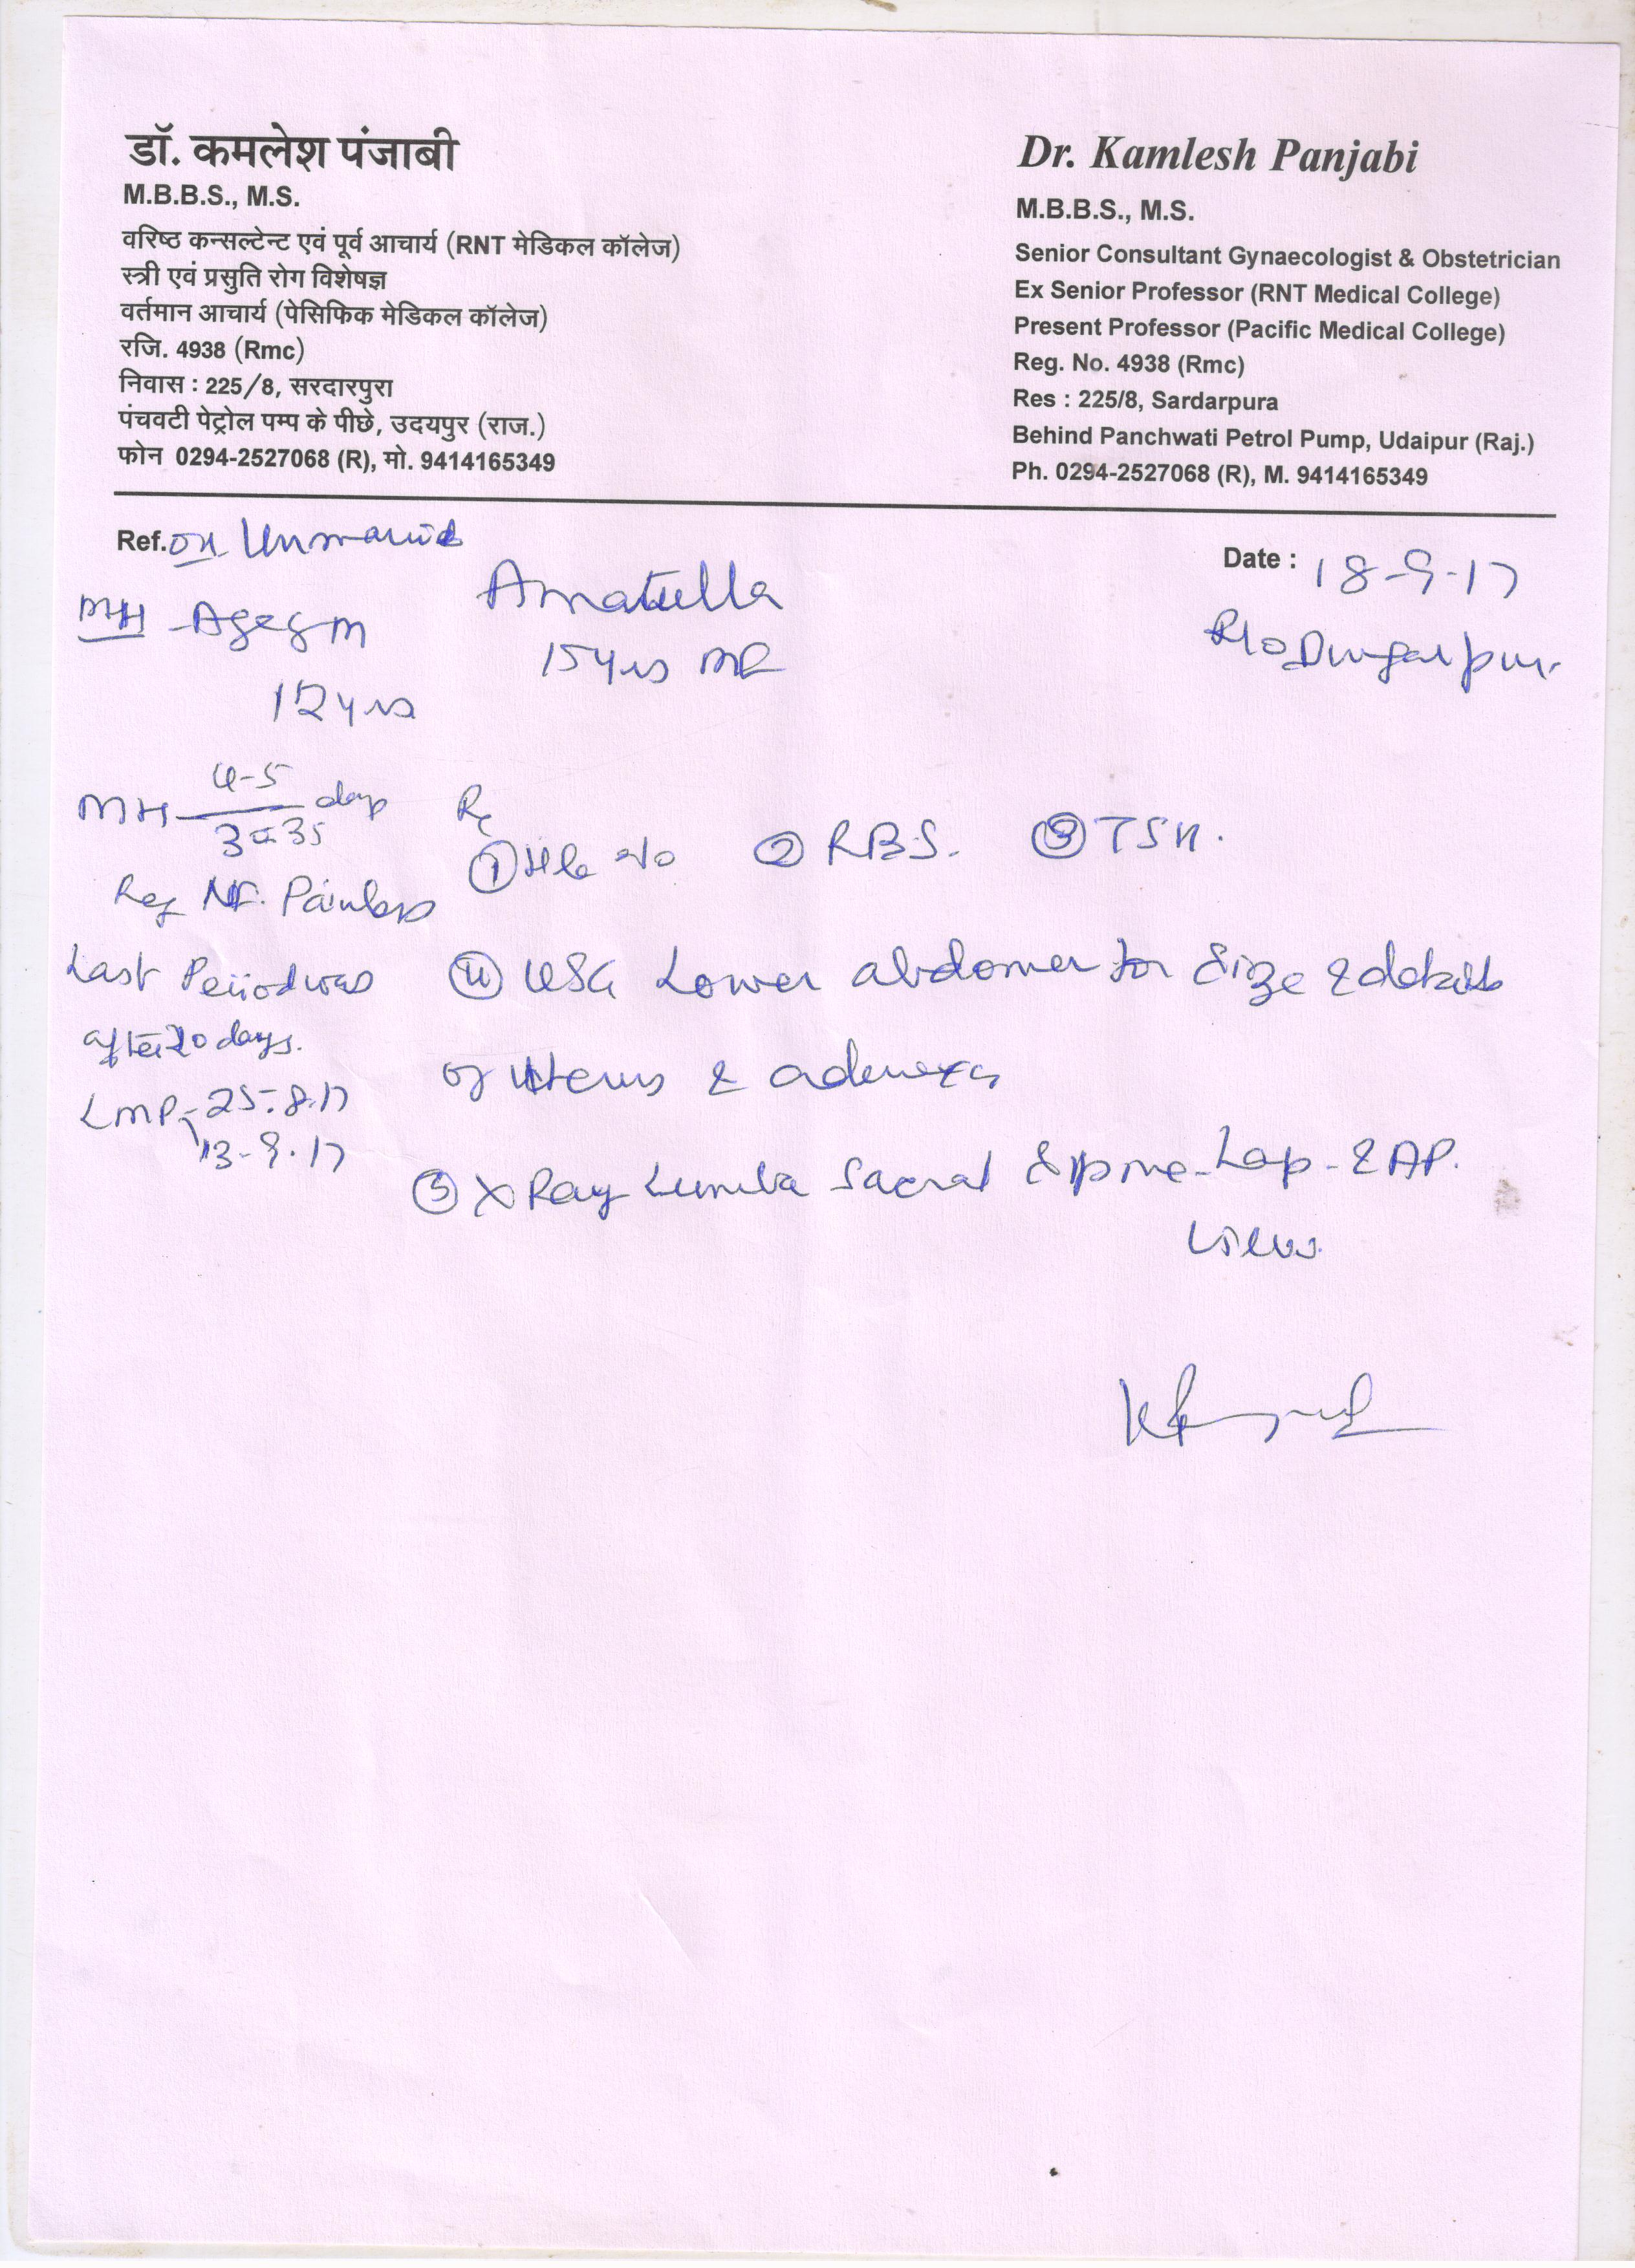 डॉ. कमलेश पंजाबी
M.B.B.S., M.S.
वरिष्ठ कन्सल्टेन्ट एवं पूर्व आचार्य (RNT मेडिकल कॉलेज)
स्त्री एवं प्रसुति रोग विशेषज्ञ
वर्तमान आचार्य (पेसिफिक मेडिकल कॉलेज)
रजि. 4938 (Rmc)
निवास : 225/8, सरदारपुरा
पंचवटी पेट्रोल पम्प के पीछे, उदयपुर (राज.)
फोन 0294-2527068 (R), मो. 9414165349
Dr. Kamlesh Panjabi
M.B.B.S., M.S.
Senior Consultant Gynaecologist & Obstetrician
Ex Senior Professor (RNT Medical College)
Present Professor (Pacific Medical College)
Reg. No. 4938 (Rmc)
Res : 225/8, Sardarpura
Behind Panchwati Petrol Pump, Udaipur (Raj.)
Ph. 0294-2527068 (R), M. 9414165349
Ref. OH Unmarried
Date : 18-9-17
R/o Dungarpur.
MH Age of M
12 yrs
Amatulla
15 yrs
MH 4-5 days
30-35
Reg NF. Painless
Last Period was
after 20 days.
LMP - 25.8.17
13-9.17
Rx
① Hb % ② RBS. ③ TSH.
④ USG Lower abdomen for Size & details
of uterus & adenexa
⑤ X Ray Lumba Sacral Spine & AP.
view.